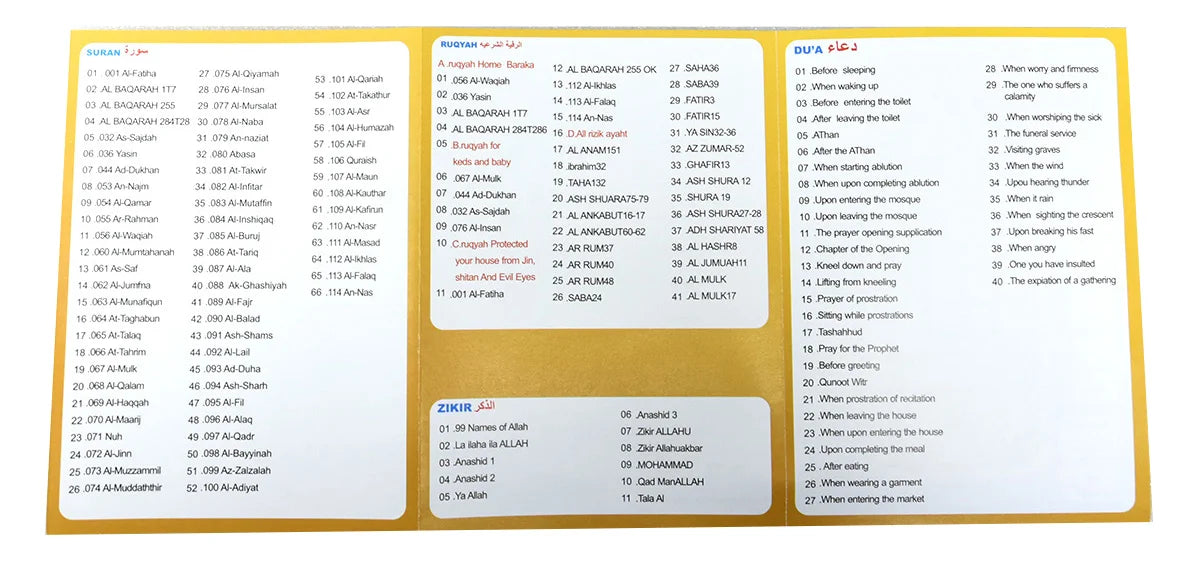 SURAN سورة
01 .001 Al-Fatiha
02 .AL BAQARAH 1T7
03 .AL BAQARAH 255
04 .AL BAQARAH 284T28
05 .032 As-Sajdah
06 .036 Yasin
07 .044 Ad-Dukhan
08 .053 An-Najm
09 .054 Al-Qamar
10 .055 Ar-Rahman
11 .056 Al-Waqiah
12 .060 Al-Mumtahanah
13 .061 As-Saf
14 .062 Al-Jumfna
15 .063 Al-Munafiqun
16 .064 At-Taghabun
17 .065 At-Talaq
18 .066 At-Tahrim
19 .067 Al-Mulk
20 .068 Al-Qalam
21 .069 Al-Haqqah
22 .070 Al-Maarij
23 .071 Nuh
24 .072 Al-Jinn
25 .073 Al-Muzzammil
26 .074 Al-Muddaththir
27 .075 Al-Qiyamah
28 .076 Al-Insan
29 .077 Al-Mursalat
30 .078 Al-Naba
31 .079 An-naziat
32 .080 Abasa
33 .081 At-Takwir
34 .082 Al-Infitar
35 .083 Al-Mutaffin
36 .084 Al-Inshiqaq
37 .085 Al-Buruj
38 .086 At-Tariq
39 .087 Al-Ala
40 .088 Ak-Ghashiyah
41 .089 Al-Fajr
42 .090 Al-Balad
43 .091 Ash-Shams
44 .092 Al-Lail
45 .093 Ad-Duha
46 .094 Ash-Sharh
47 .095 At-Fil
48 .096 Al-Alaq
49 .097 Al-Qadr
50 .098 Al-Bayyinah
51 .099 Az-Zalzalah
52 .100 Al-Adiyat
53 .101 Al-Qariah
54 .102 At-Takathur
55 .103 Al-Asr
56 .104 Al-Humazah
57 .105 Al-Fil
58 .106 Quraish
59 .107 Al-Maun
60 .108 Al-Kauthar
61 .109 Al-Kafirun
62 .110 An-Nasr
63 .111 Al-Masad
64 .112 Al-Ikhlas
65 .113 Al-Falaq
66 .114 An-Nas
RUQYAH الرقية الشرعيه
A .ruqyah Home Baraka
01 .056 Al-Waqiah
02 .036 Yasin
03 .AL BAQARAH 1T7
04 .AL BAQARAH 284T286
05 .B.ruqyah for
keds and baby
06 .067 Al-Mulk
07 .044 Ad-Dukhan
08 .032 As-Sajdah
09 .076 Al-Insan
10 .C.ruqyah Protected
your house from Jin,
shitan And Evil Eyes
11 .001 Al-Fatiha
12 .AL BAQARAH 255 OK
13 .112 Al-Ikhlas
14 .113 Al-Falaq
15 .114 An-Nas
16 .D.All rizik ayaht
17 .AL ANAM151
18 .ibrahim32
19 .TAHA132
20 .ASH SHUARA75-79
21 .AL ANKABUT16-17
22 .AL ANKABUT60-62
23 .AR RUM37
24 .AR RUM40
25 .AR RUM48
26 .SABA24
27 .SAHA36
28 .SABA39
29 .FATIR3
30 .FATIR15
31 .YA SIN32-36
32 .AZ ZUMAR-52
33 .GHAFIR13
34 .ASH SHURA 12
35 .SHURA 19
36 .ASH SHURA27-28
37 .ADH SHARIYAT 58
38 .AL HASHR8
39 .AL JUMUAH11
40 .AL MULK
41 .AL MULK17
ZIKIR الذكر
01 .99 Names of Allah
02 .La ilaha ila ALLAH
03 .Anashid 1
04 .Anashid 2
05 .Ya Allah
06 .Anashid 3
07 .Zikir ALLAHU
08 .Zikir Allahuakbar
09 .MOHAMMAD
10 .Qad ManALLAH
11 .Tala Al
DU'A دعاء
01 .Before sleeping
02 .When waking up
03 .Before entering the toilet
04 .After leaving the toilet
05 .AThan
06 .After the AThan
07 .When starting ablution
08 .When upon completing ablution
09 .Upon entering the mosque
10 .Upon leaving the mosque
11 .The prayer opening supplication
12 .Chapter of the Opening
13 .Kneel down and pray
14 .Lifting from kneeling
15 .Prayer of prostration
16 .Sitting while prostrations
17 .Tashahhud
18 .Pray for the Prophet
19 .Before greeting
20 .Qunoot Witr
21 .When prostration of recitation
22 .When leaving the house
23 .When upon entering the house
24 .Upon completing the meal
25 . After eating
26 .When wearing a garment
27 .When entering the market
28 .When worry and firmness
29 .The one who suffers a
calamity
30 .When worshiping the sick
31 .The funeral service
32 .Visiting graves
33 .When the wind
34 .Upou hearing thunder
35 .When it rain
36 .When sighting the crescent
37 .Upon breaking his fast
38 .When angry
39 .One you have insulted
40 .The expiation of a gathering